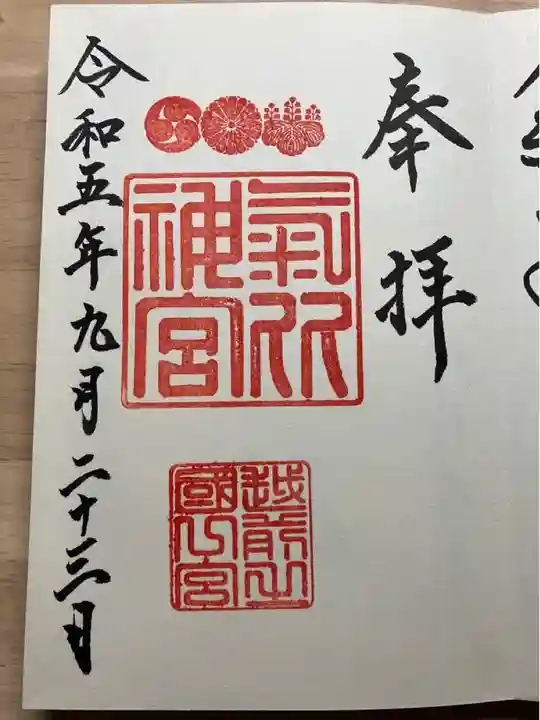 奉拝
氣比
神宮
越前之
國一宮
令和五年九月二十三日